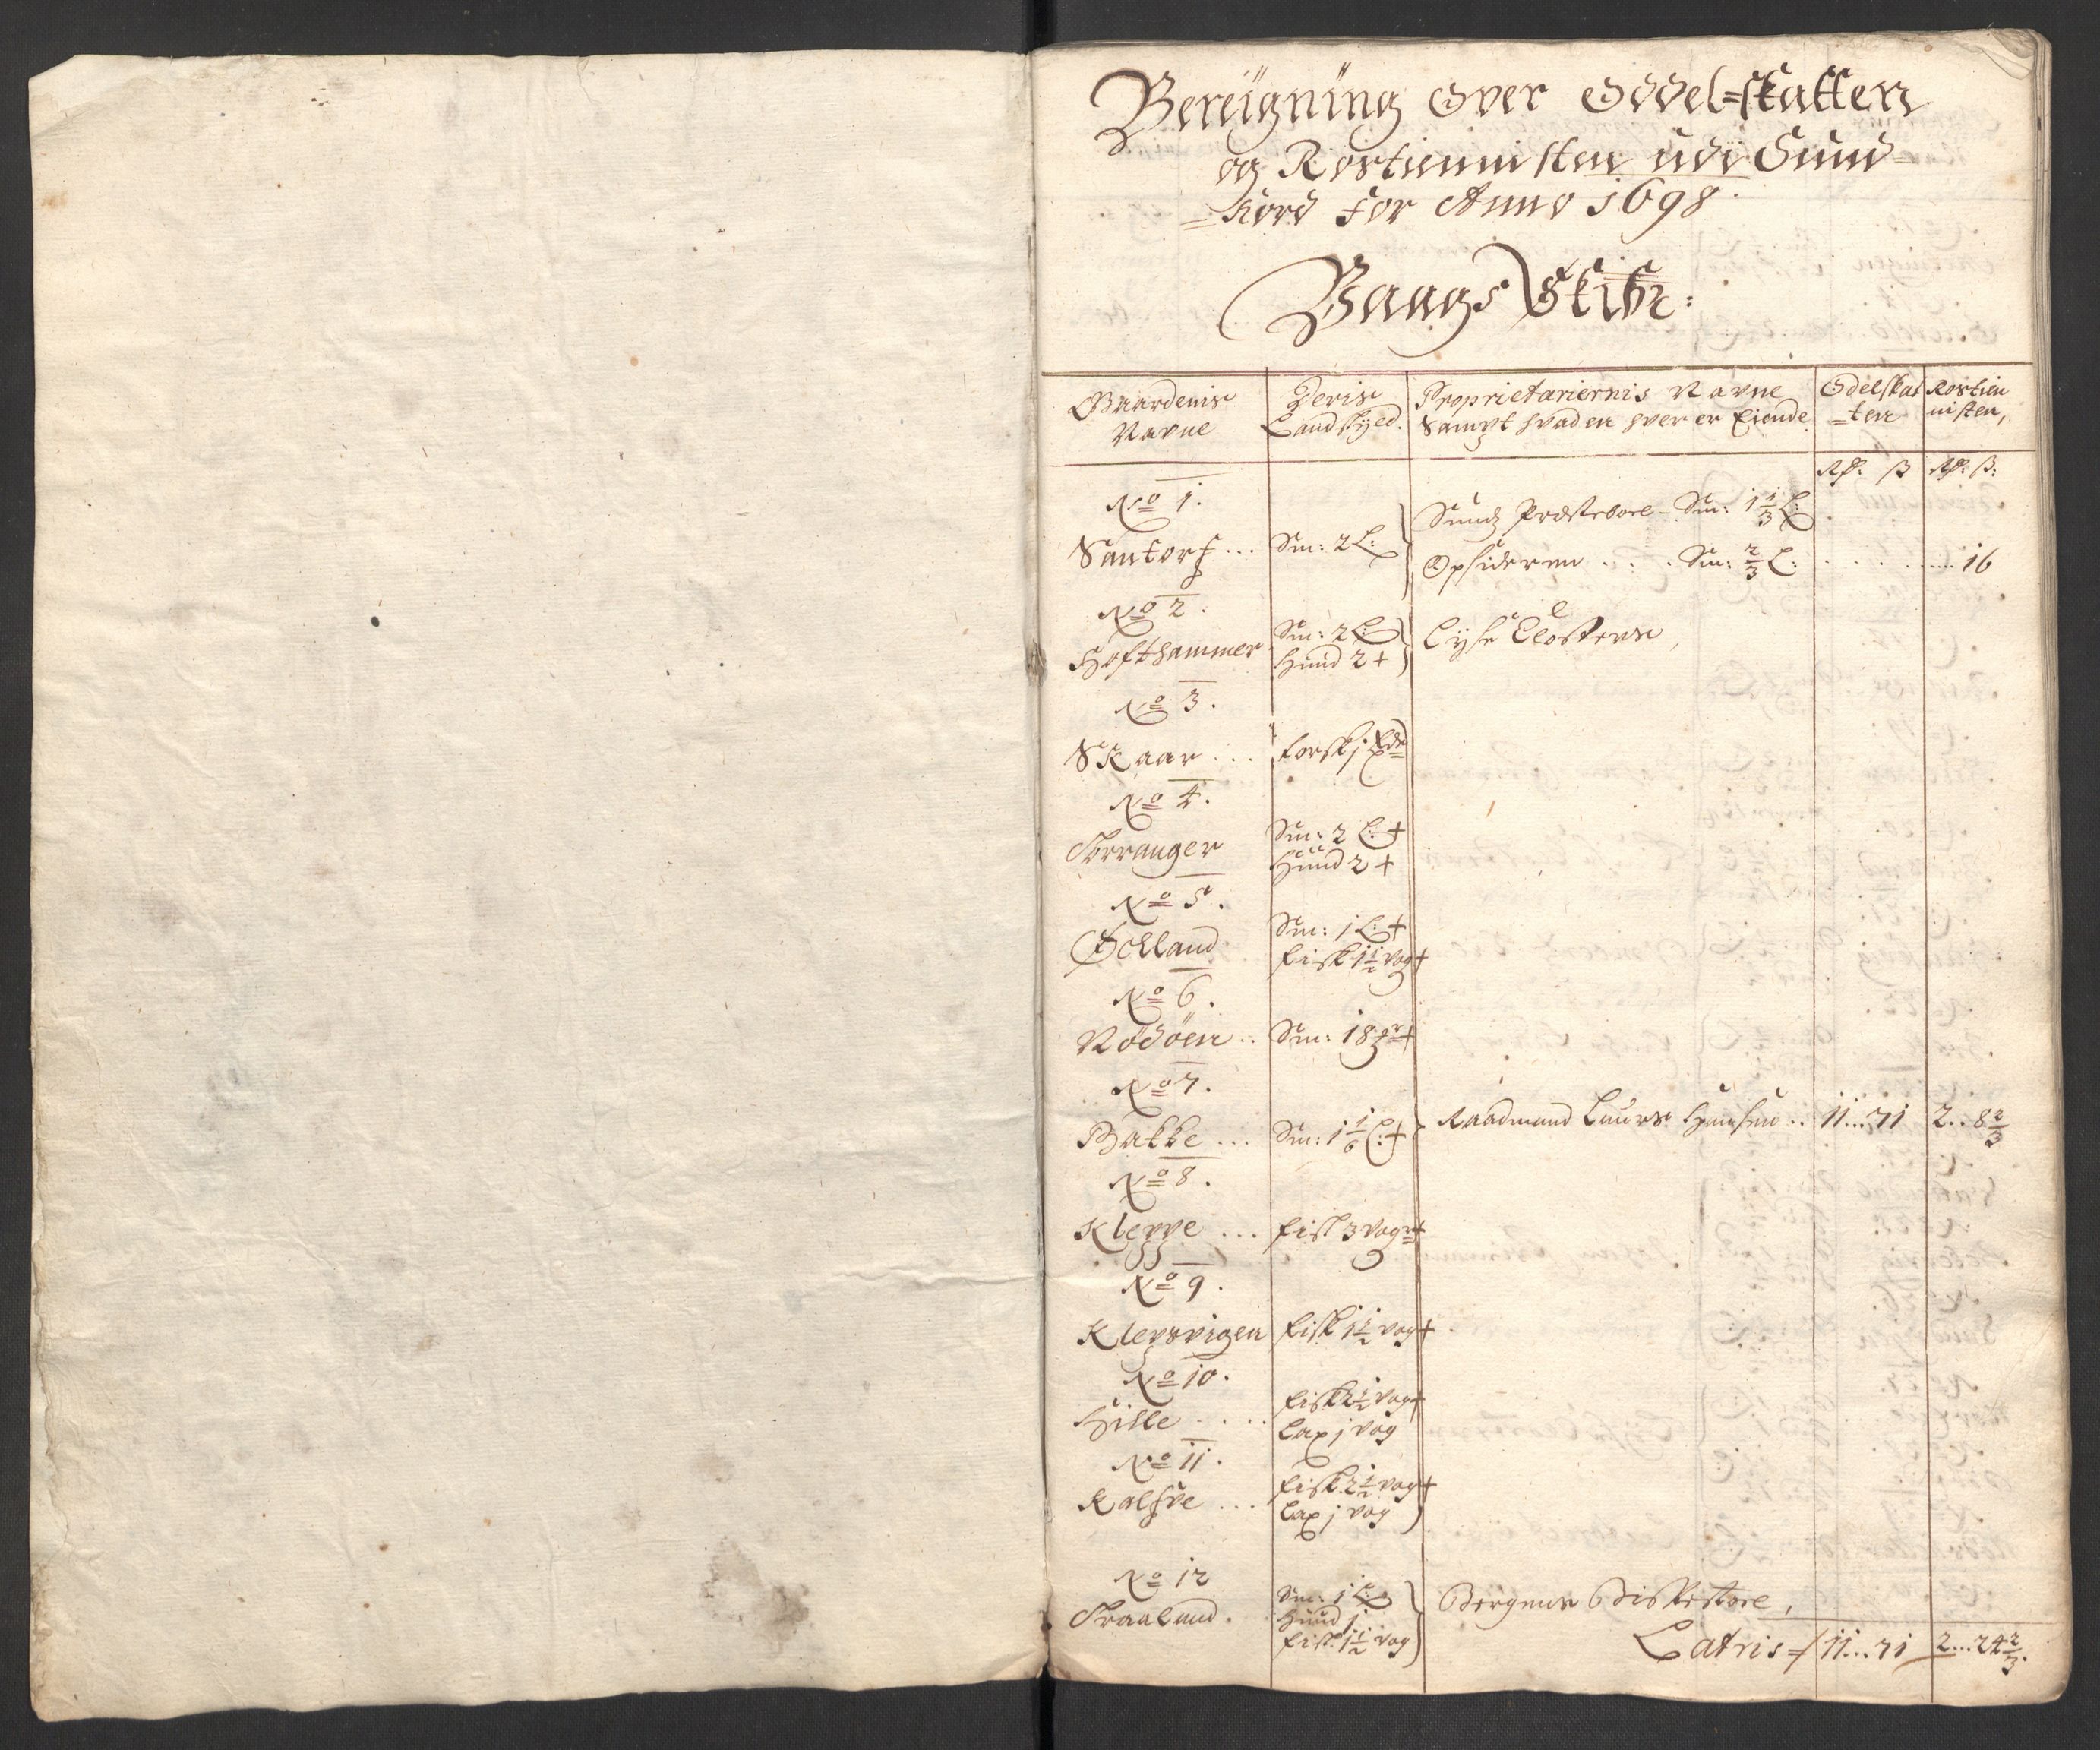 Bereigning Over Oddel=skatten
og Rostienniisten udi Sund=
=hord for Anno 1698.
Vaags Skibr:
Gaardenis Navne
Deris Landskyed.
Proprietariernis Navne Sampt hvad en hver er Eiende
Odelskat=ten
Rostienniisten,
Rdr: ß Rdr: ß:
No 1.
Santorf ... Sm: 2 L: Sundz Præstebole - Sm: 1 1/3 L:
Opsideren . . . Sm: 2/3 L: . . . . . 16
No 2.
Hofthammer Sm: 2 L: Lyse Closters,
Huud 2 +
No 3.
Skaar ... forsk j
No 4.
Torranger Sm: 2 L: +
Huud 2 +
No 5.
Golland Sm: 1 L: +
fisk 1 1/2 vog +
No 6.
Rødøen .. Sm: 18 +
No 7.
Bakke ... Sm: 1 1/6 L: + Raadmand Laurs Hansen .. 11...71 2..8 2/3
No 8.
Kleppe ... fisk 3 vog +
No 9.
Klepsvigen fisk 1 1/2 vog +
No 10.
Hille .... fisk 2 1/2 vog +
Lax j vog
No 11.
Kalfve ... fisk 2 1/2 vog +
Lax j vog
No 12
Traaland. Sm: 1 L: Bergens Bispestoel,
Huud 1
fisk 1 1/2 vog
Latris 11...71 2...24 2/3.